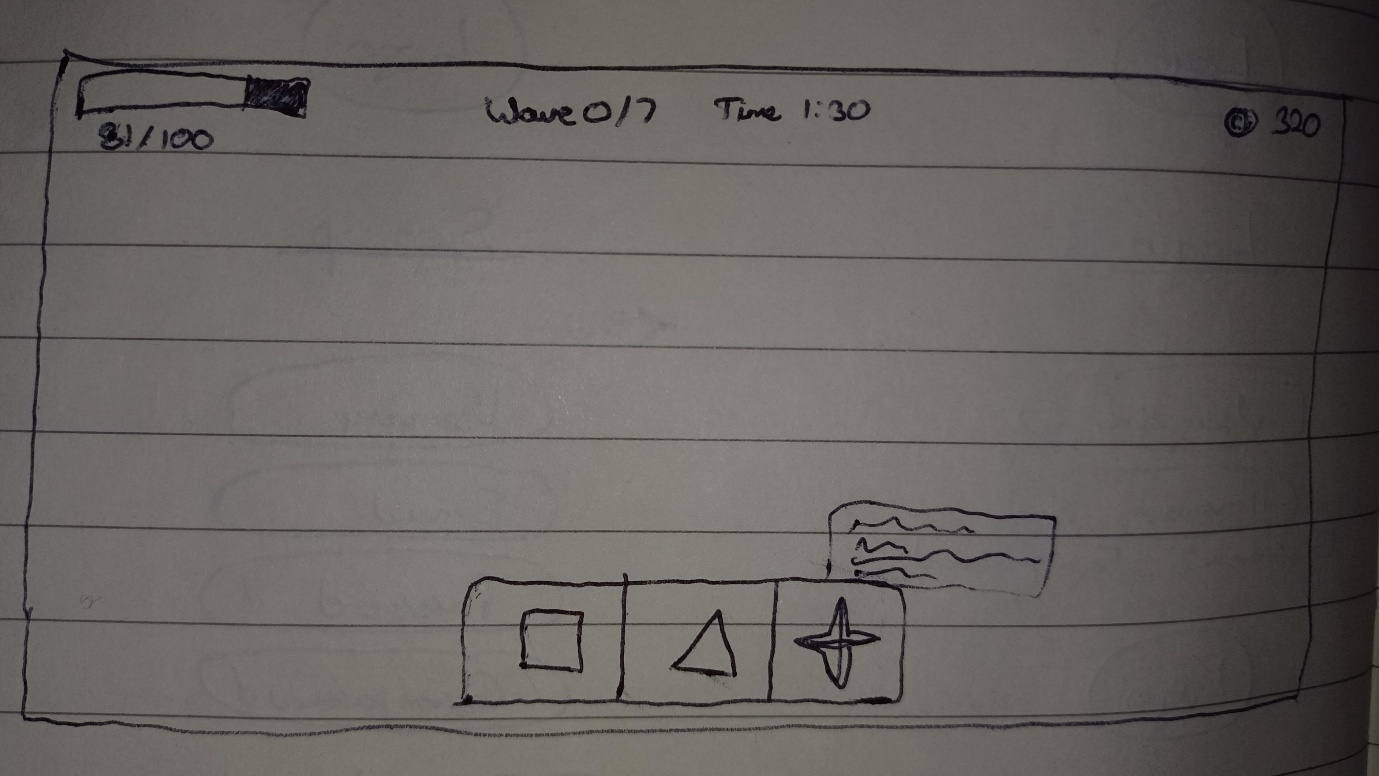 81/100
Wave 0/7 Time 1:30
© 320